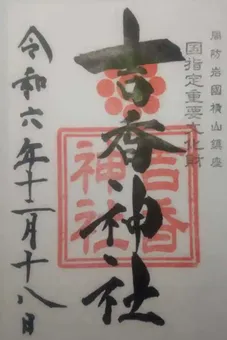 周防岩國横山鎮座
国指定重要文化財
吉香神社
吉香神社
令和六年十二月十八日